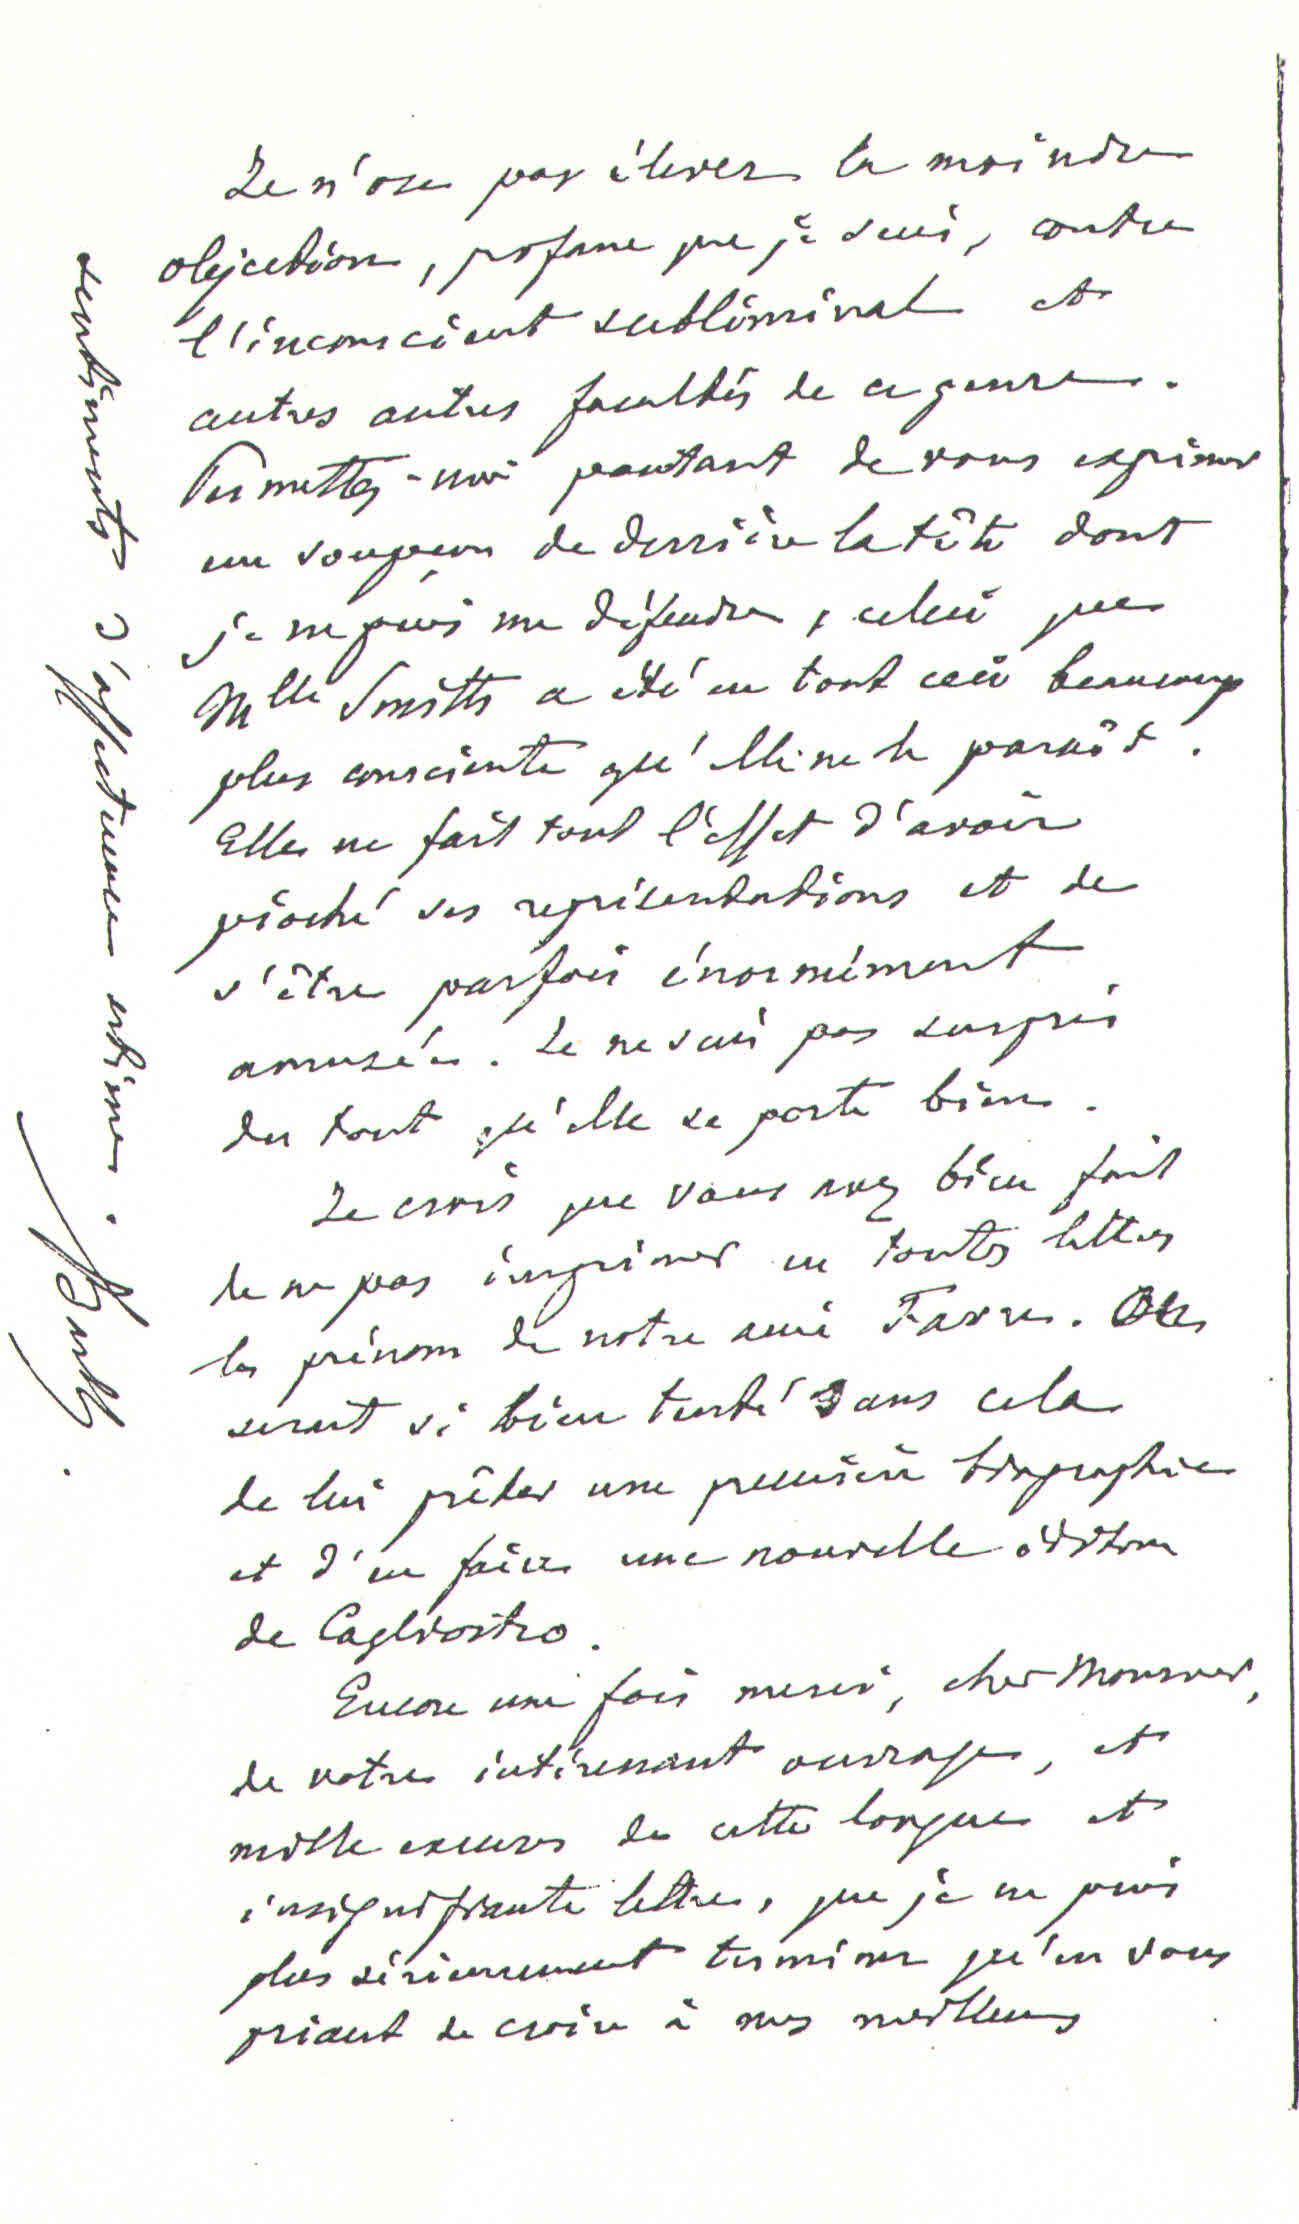 Je n'ose pas élever la moindre
objection, profane que je suis, contre
l'inconscient subliminal et
autres autres facultés de ce genre.
Permettez-moi pourtant de vous exprimer
un soupçon de derrière la tête dont
je ne puis me défendre, celui que
Mlle Smith a été en tout ceci beaucoup
plus consciente qu'elle ne le paraît.
Elle me fait tout l'effet d'avoir
pioché ses représentations et de
s'être parfois énormément
amusée. Je ne suis pas surpris
du tout qu'elle se porte bien.
Je crois que vous avez bien fait
de ne pas imprimer en toutes lettres
le prénom de notre ami Favre. On
serait si bien tenté sans cela
de lui prêter une première biographie
et d'en faire une nouvelle édition
de Cagliostro.
Encore une fois merci, cher Monsieur,
de votre intéressant ouvrage, et
mille excuses de cette longue et
insignifiante lettre, que je ne puis
plus sérieusement terminer qu'en vous
priant de croire à mes meilleurs
sentiments d'affectueuse estime.